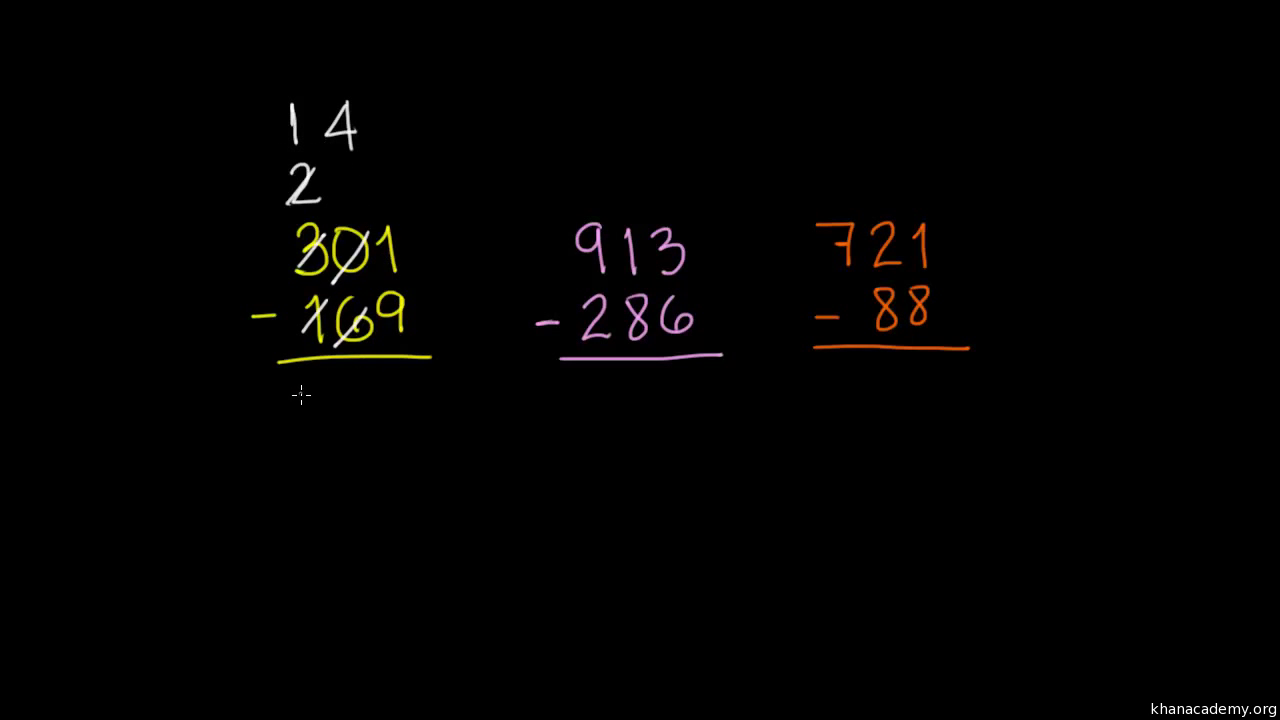 14
2
301
- 169
913
- 286
721
- 88
khanacademy.org